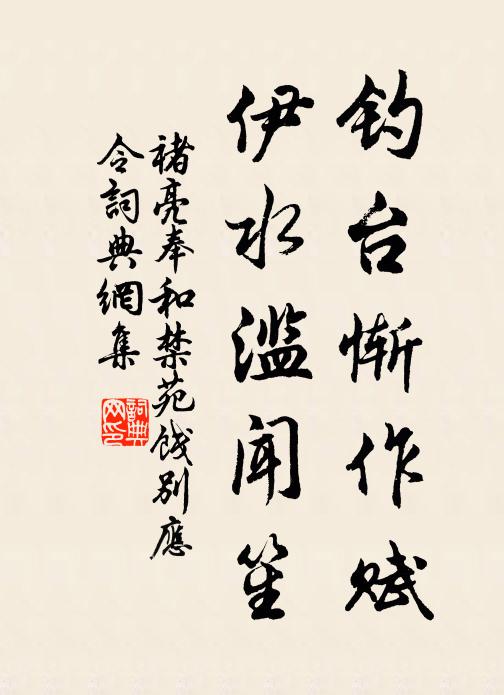 钓台惭作赋
伊水滥闻笙
褚亮奉和禁苑饯别應
令詞典網集
詞典网印